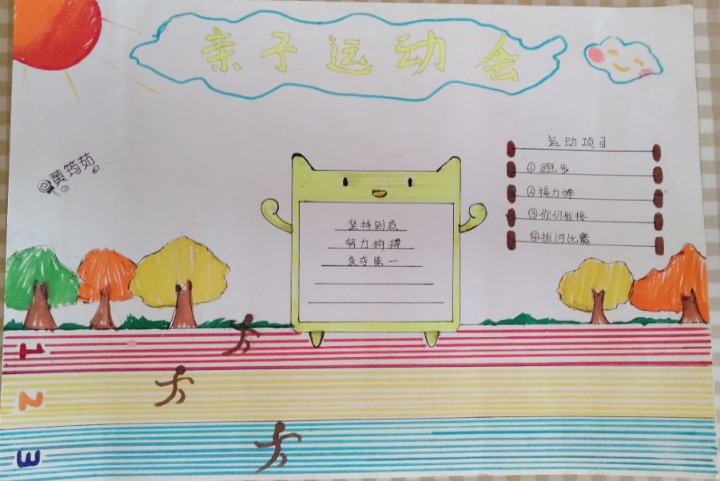 亲子运动会
@黄筠茹
坚持到底
努力拼搏
第一
运动项目
①跑步
②接力棒
③你
④拔河比赛
1
2
3